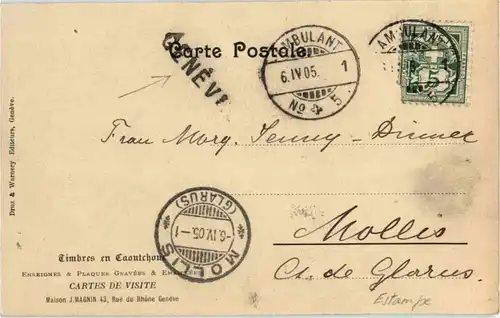 Carte Postale.
GENÈV
AMBULANT
6.IV 05. 1
No 4 5
AMBULANT
Frau Marg. Jenny-Dinner
Mollis
Ct. de Glarus
Estampe
(GLARUS)
-6.IV.05.-1
MOLLIS
Druz & Warnery Editeurs, Genève.
Timbres en Caoutchouc
Enseignes & Plaques Gravées &
CARTES DE VISITE
Maison J. MAGNIN 43, Rue du Rhône Genève